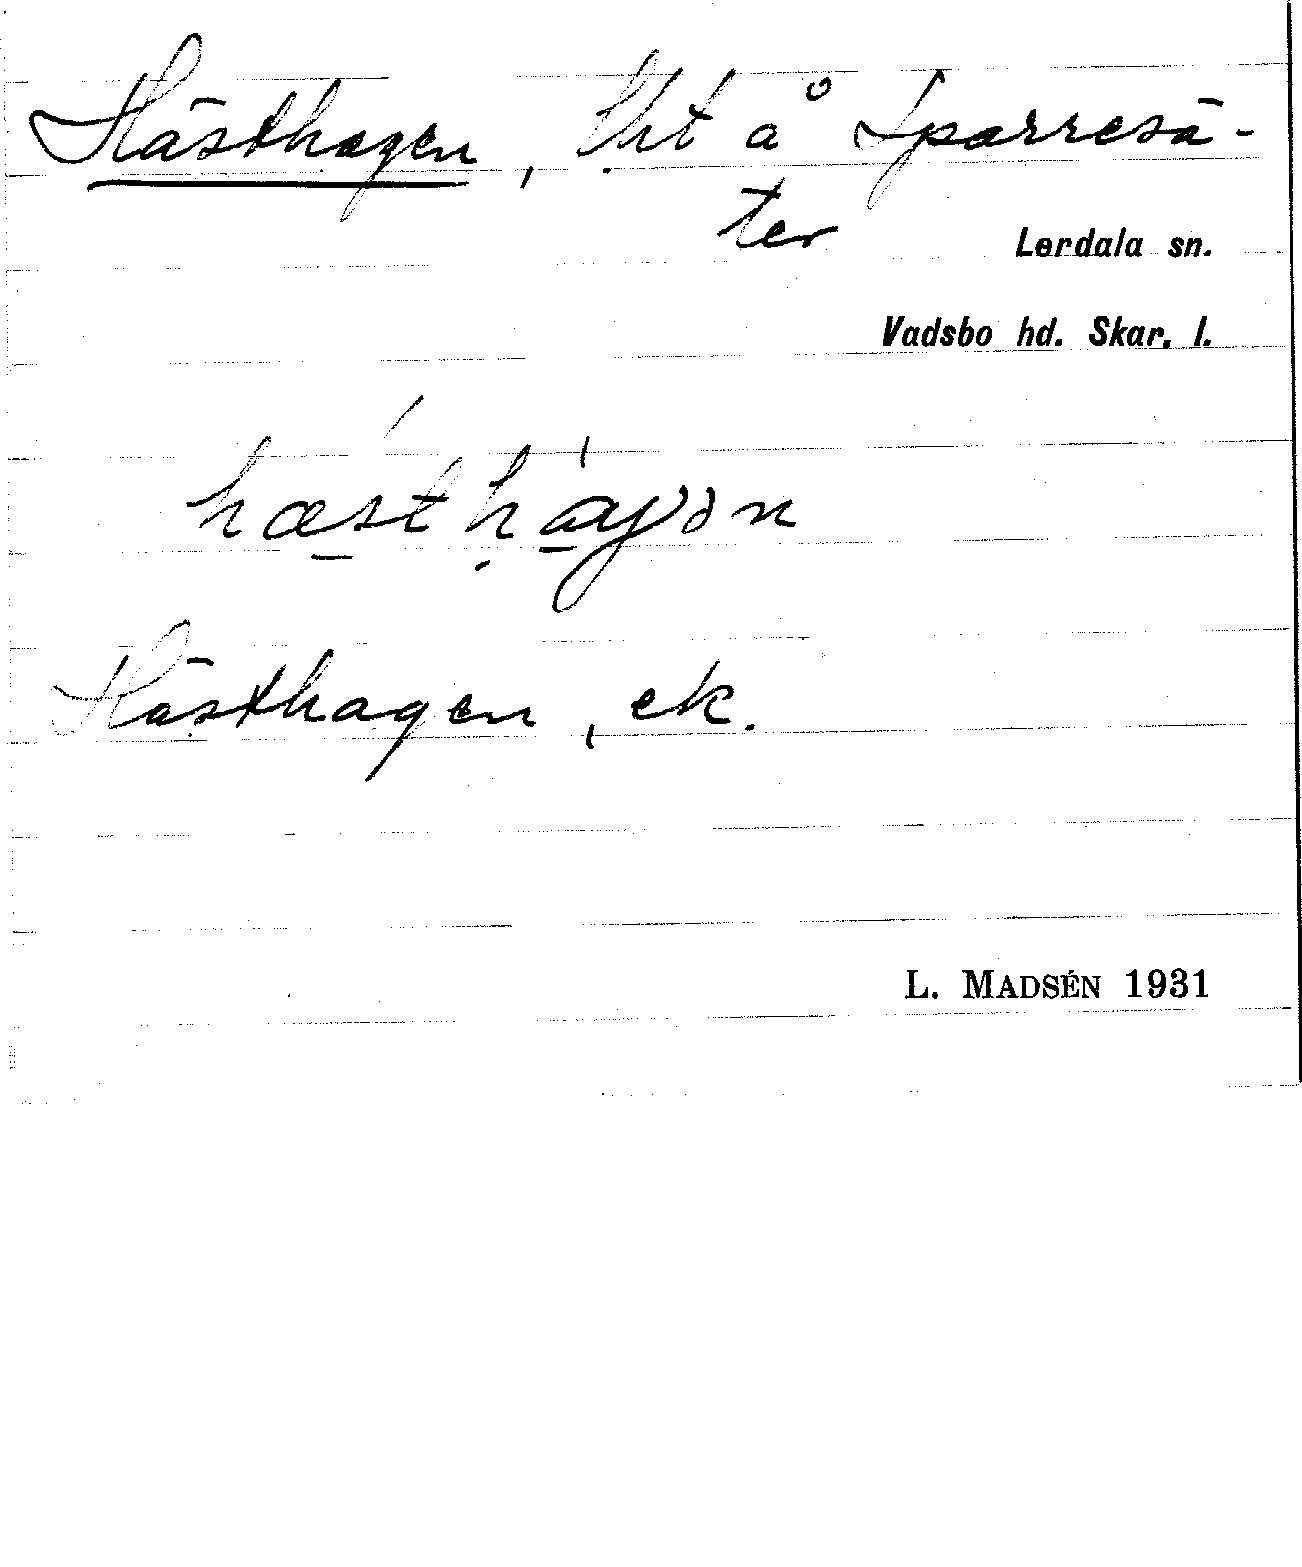 Hästhagen, lht å Sparresä-
ter
Lerdala sn.
Vadsbo hd. Skar. l.
Hästhagen, ek.
L. MADSÉN 1931